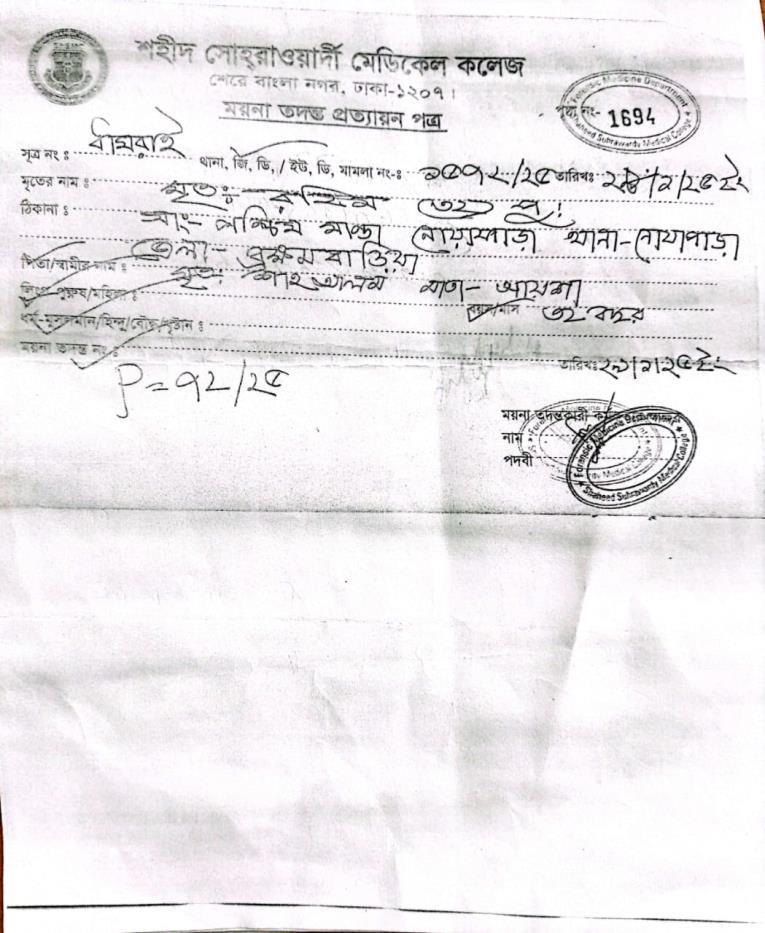 শহীদ সোহরাওয়ার্দী মেডিকেল কলেজ
শেরে বাংলা নগর, ঢাকা-১২০৭।
ময়না তদন্ত প্রত্যায়ন পত্র
পৃষ্ঠা নং- 1694
Forensic Medicine Department
Shaheed Suhrawardy Medical College
সূত্র নং ঃ ধামরাই থানা, জি, ডি, / ইউ, ডি, মামলা নং-ঃ তারিখঃ
মৃতের নাম ঃ মৃতঃ রহিম
ঠিকানা ঃ সাং- পশ্চিম নোয়াপাড়া থানা-নোয়াপাড়া
জেলা-
পিতা/স্বামীর নাম ঃ মৃতঃ শাহআলম মাতা- আয়শা
লিংগ-পুরুষ/মহিলা ঃ বয়স/মাস বছর
ধর্ম-মুসলমান/হিন্দু/বৌদ্ধ/খৃষ্টান ঃ
ময়না তদন্ত নং ঃ তারিখঃ
P = ৭২/২৫
ময়না তদন্তকারী
নাম
পদবী
Forensic Medicine Department
Shaheed Suhrawardy Medical College